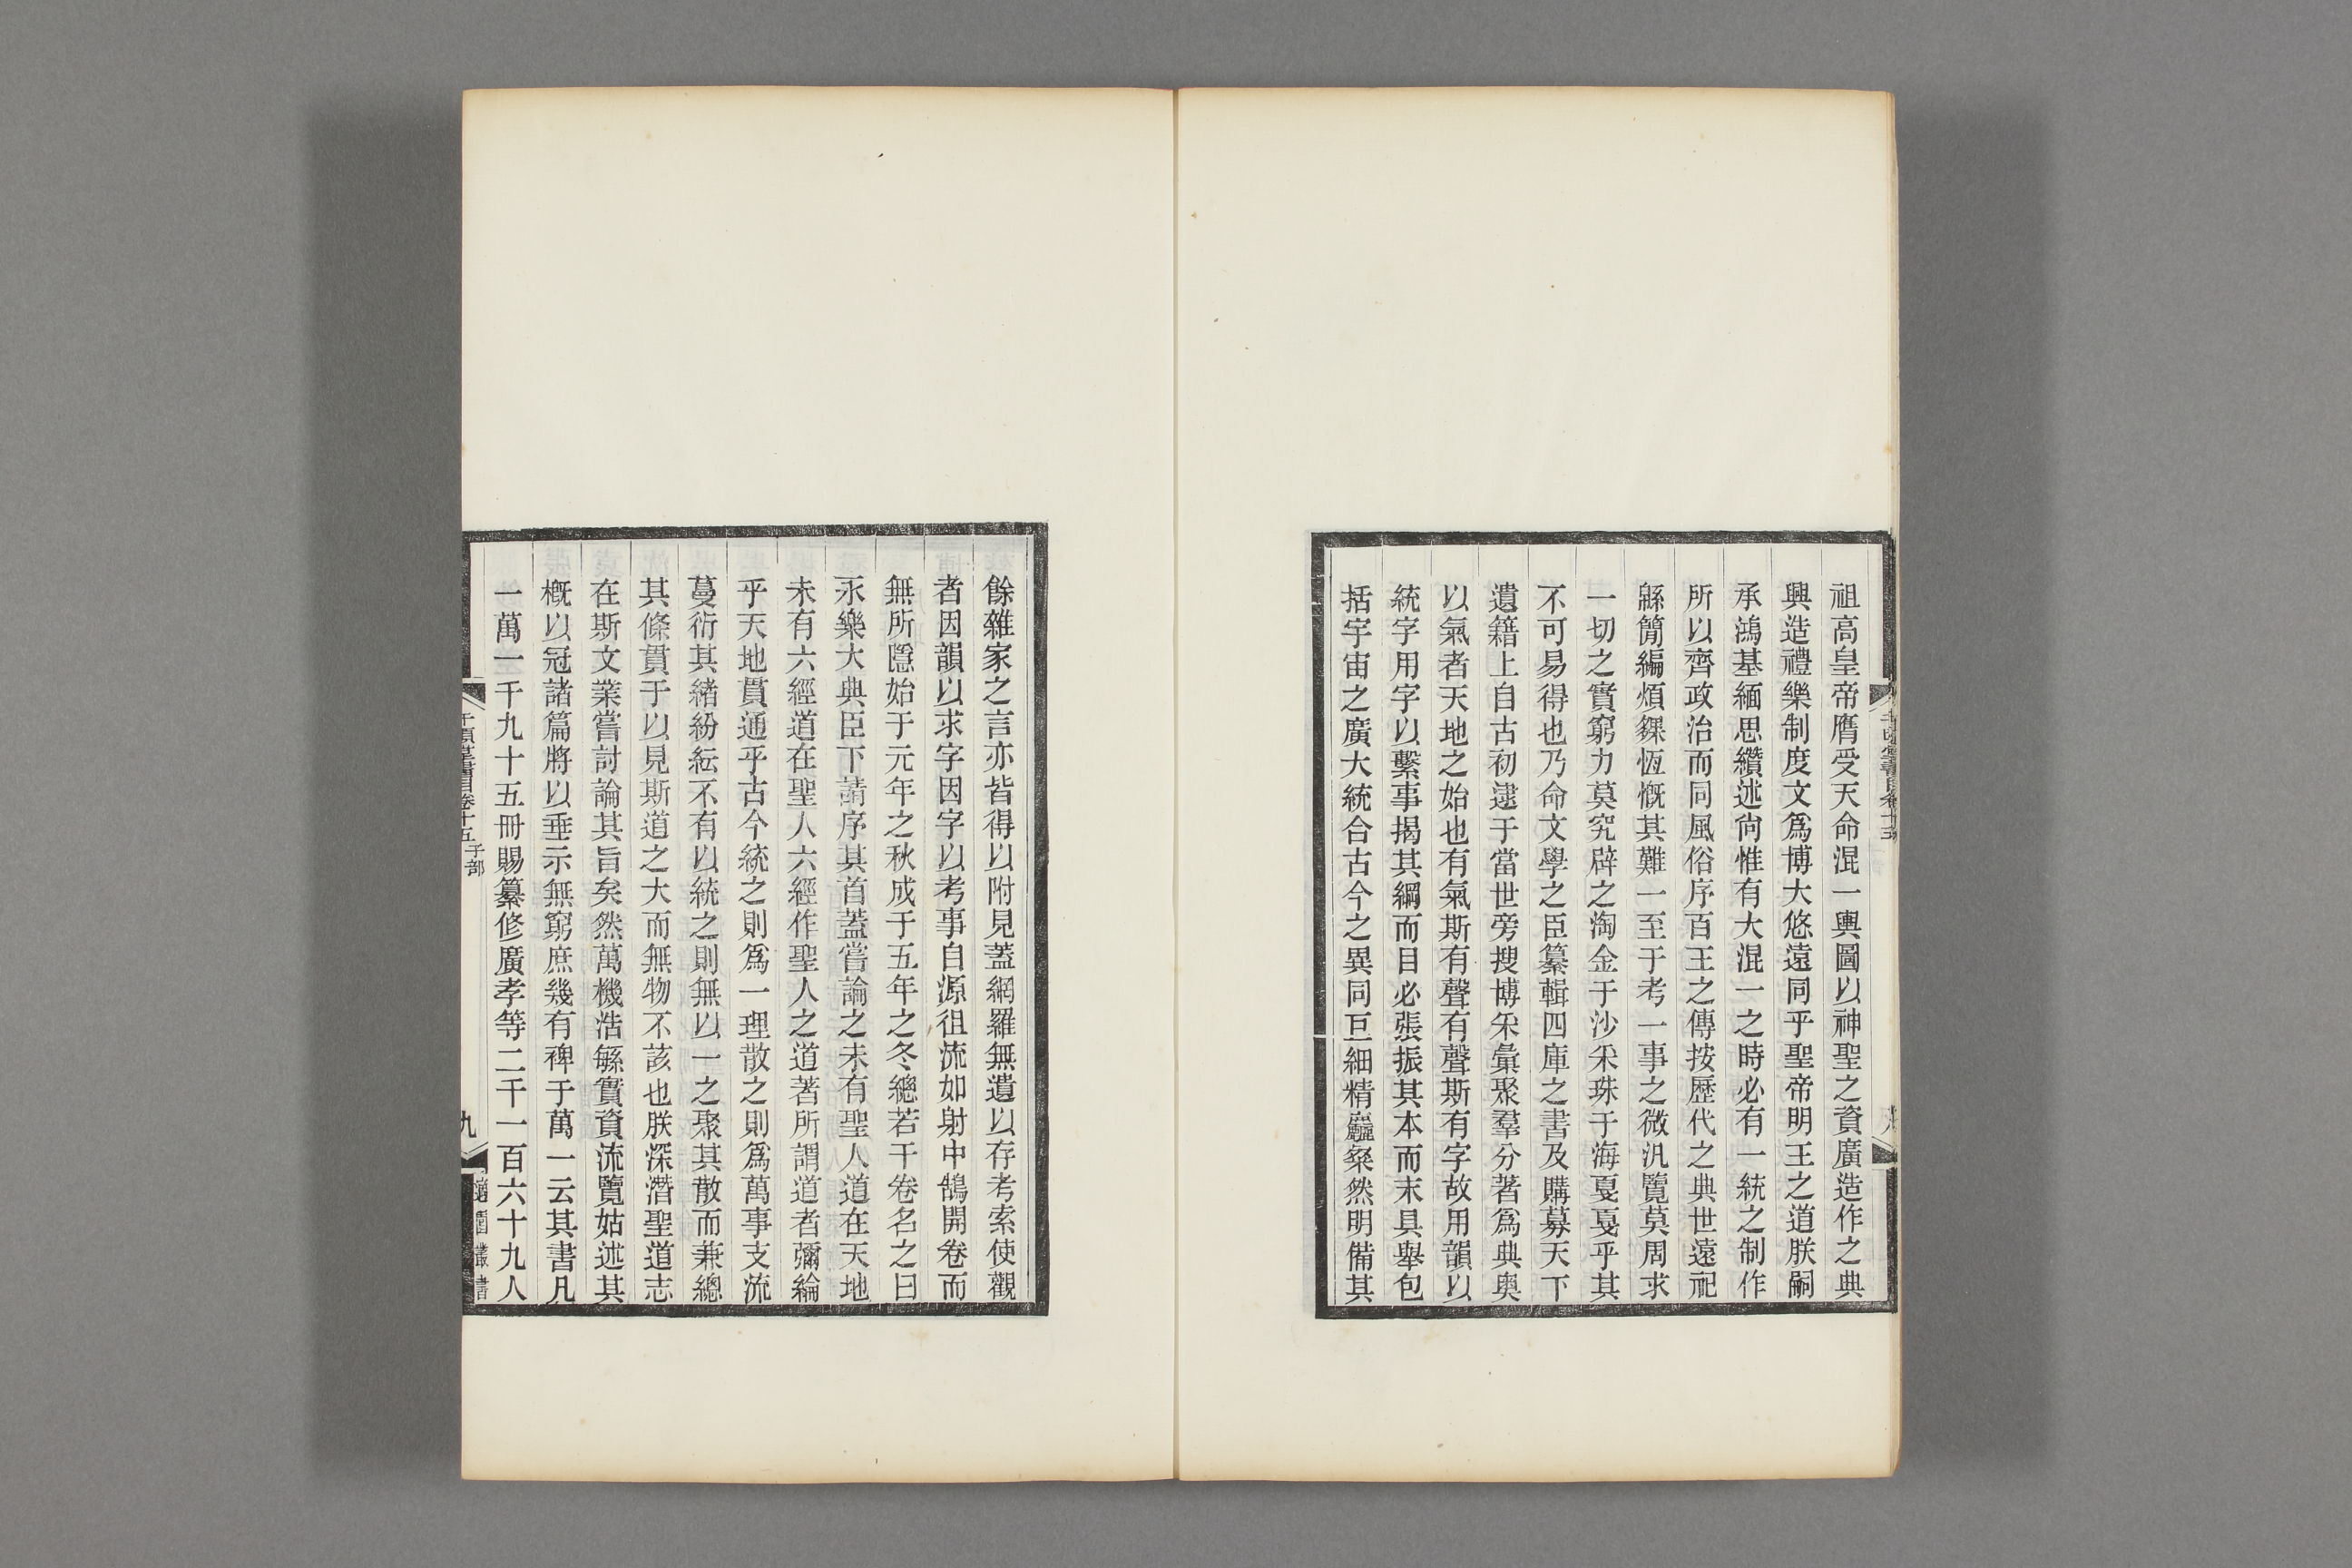 祖高皇帝膺受天命混一輿圖以神聖之資廣造作之典
興造禮樂制度文爲博大悠遠同乎聖帝明王之道朕嗣
承鴻基緬思纘述尙惟有大混一之時必有一統之制作
所以齊政治而同風俗序百王之傳按歷代之典世遠祀
緜簡編煩夥恆慨其難一至于考一事之微汎覽莫周求
一切之實窮力莫究辟之淘金于沙采珠于海戛戛乎其
不可易得也乃命文學之臣纂輯四庫之書及購募天下
遺籍上自古初逮于當世旁搜博采彙聚羣分著爲典奥
以氣者天地之始也有氣斯有聲有聲斯有字故用韻以
統字用字以繫事揭其綱而目必張振其本而末具舉包
括宇宙之廣大統合古今之異同巨細精麤粲然明備其
餘雜家之言亦皆得以附見蓋網羅無遺以存考索使觀
者因韻以求字因字以考事自源徂流如射中鵠開卷而
無所隱始于元年之秋成于五年之冬總若干卷名之曰
永樂大典臣下請序其首蓋嘗論之未有聖人道在天地
未有六經道在聖人六經作聖人之道著所謂道者彌綸
乎天地貫通乎古今統之則爲一理散之則爲萬事支流
蔓衍其緖紛紜不有以統之則無以一之聚其散而兼總
其條貫于以見斯道之大而無物不該也朕深潛聖道志
在斯文業嘗討論其旨矣然萬機浩緐實資流覽姑述其
槪以冠諸篇將以垂示無窮庶幾有裨于萬一云其書凡
一萬一千九十五冊賜纂修廣孝等二千一百六十九人
千頃堂書目卷十五 子部
九
適園叢書